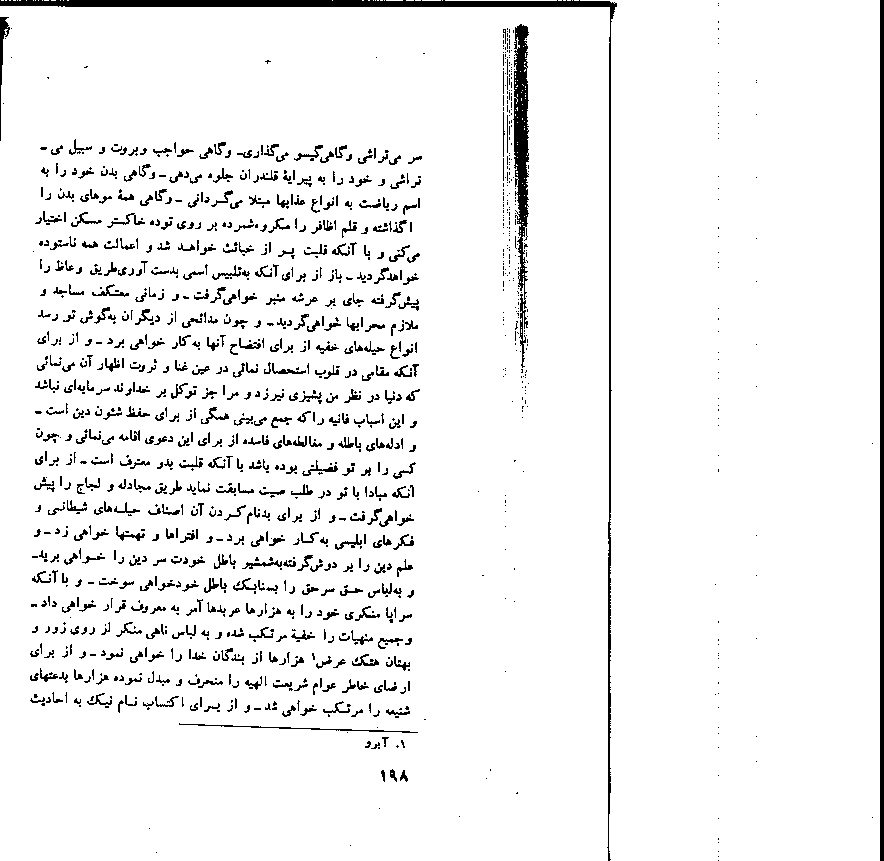 سر می‌تراشی وگاهی‌گیسو می‌گذاری_ وگاهی حواجب وبروت و سبیل می _
تراشی و خود را به پیرایهٔ قلندران جلوه می‌دهی _ وگاهی بدن خود را به
اسم ریاضت به انواع عذابها مبتلا می‌گردانی _ وگاهی همهٔ موهای بدن را
اگذاشته و قلم اظافر را مکروه‌شمرده بر روی توده خاکستر مسکن اختیار
می‌کنی و با آنکه قلبت پر از خبائث خواهد شد و اعمالت همه ناستوده
خواهدگردید _ باز از برای آنکه به‌تلبیس اسمی بدست آوری‌طریق وعاظ را
پیش‌گرفته جای بر عرشه منبر خواهی‌گرفت _ و زمانی معتکف مساجد و
ملازم محرابها خواهی‌گردید _ و چون مدائحی از دیگران به‌گوش تو رسد
انواع حیله‌های خفیه از برای افتضاح آنها به‌کار خواهی برد _ و از برای
آنکه مقامی در قلوب استحصال نمائی در عین غنا و ثروت اظهار آن می‌نمائی
که دنیا در نظر من پشیزی نیرزد و مرا جز توکل بر خداوند سرمایه‌ای نباشد
و این اسباب فانیه راکه جمع می‌بینی همگی از برای حفظ شئون دین است _
و ادله‌های باطله و مغالطه‌های فاسده از برای این دعوی اقامه می‌نمائی و چون
کسی را بر تو فضیلتی بوده باشد با آنکه قلبت بدو معترف است _ از برای
آنکه مبادا با تو در طلب صیت مسابقت نماید طریق مجادله و لجاج را پیش
خواهی‌گرفت _ و از برای بدنام‌کردن آن اصناف حیله‌های شیطانی و
فکرهای ابلیسی به‌کار خواهی برد _ و افتراها و تهمتها خواهی زد _ و
علم دین را بر دوش‌گرفته‌به‌شمشیر باطل خودت سر دین را خواهی برید_
و به‌لباس حق سر حق را بسنابک باطل خودخواهی سوخت _ و با آنکه
سراپا منکری خود را به هزارها عربدها آمر به معروف قرار خواهی داد _
وجمیع منهیات را خفیة مرتکب شده و به لباس ناهی منکر از روی زور و
بهتان هتک عرض۱ هزارها از بندگان خدا را خواهی نمود _ و از برای
ارضای خاطر عوام شریعت الهیه را منحرف و مبدل نموده هزارها بدعتهای
شنیعه را مرتکب خواهی شد _ و از برای اکتساب نام نیک به احادیث
۱. آبرو
۱۹۸